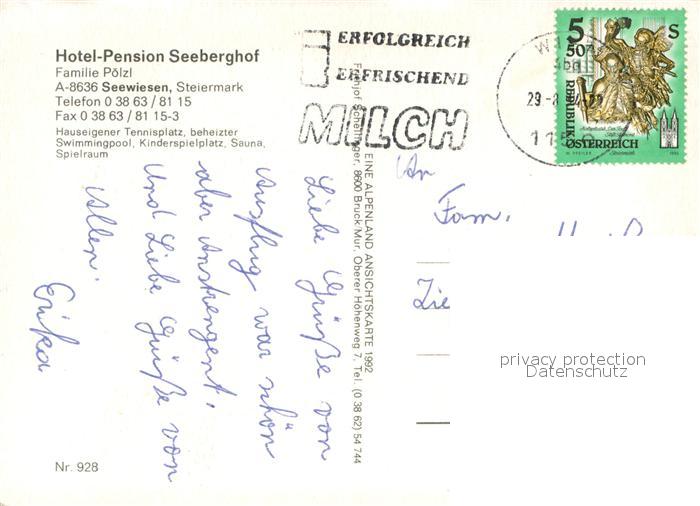 Hotel-Pension Seeberghof
Familie Pölzl
A-8636 Seewiesen, Steiermark
Telefon 0 38 63 / 81 15
Fax 0 38 63 / 81 15-3
Hauseigener Tennisplatz, beheizter
Swimmingpool, Kinderspielplatz, Sauna,
Spielraum
ERFOLGREICH
ERFRISCHEND
MILCH
29-8
115
5 50 S
REPUBLIK
ÖSTERREICH
Steiermark
EINE ALPENLAND ANSICHTSKARTE 1992
Schellinger, 8600 Bruck/Mur, Oberer Höhenweg 7, Tel. (0 38 62) 54 744
Liebe Grüße von
Ausflug war schön
aber Anstrengent.
Und Liebe Grüße von
Allen.
Erika
An
Fam.
privacy protection
Datenschutz
Nr. 928